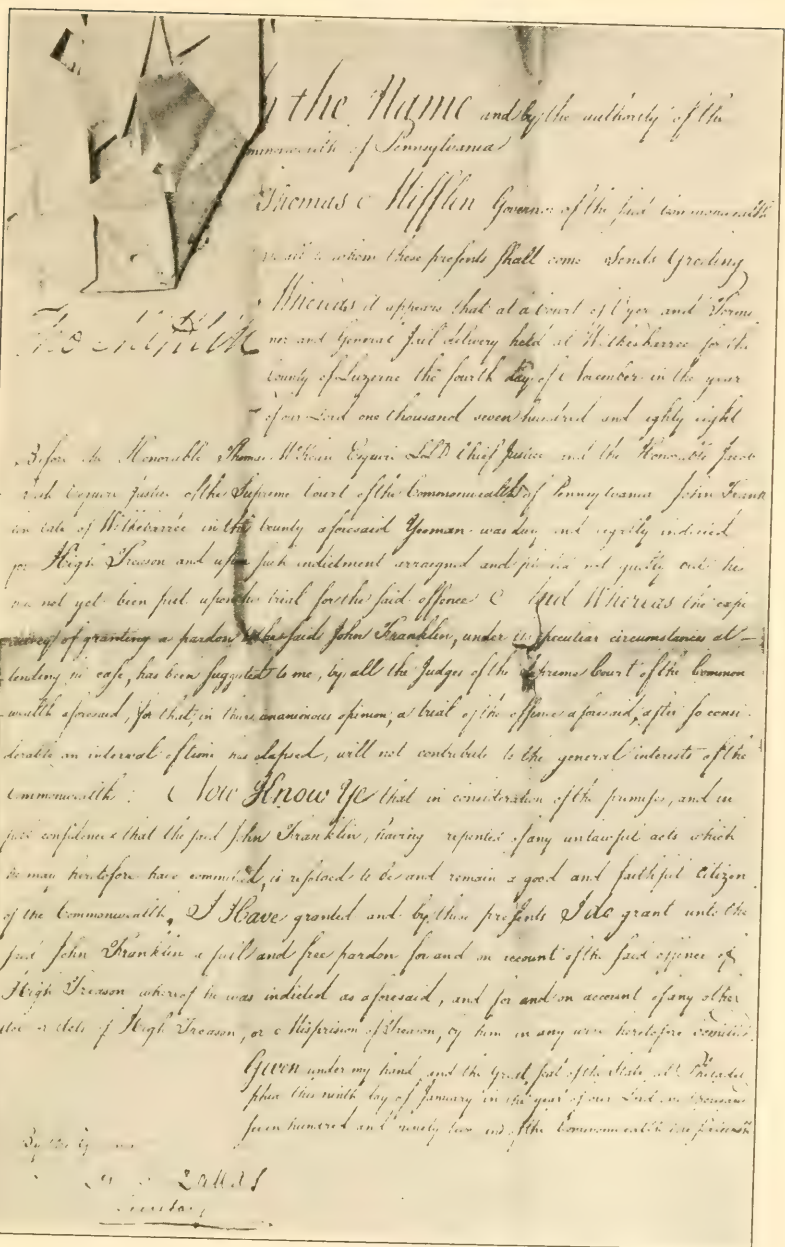 the Name and by the authority of the
of Pennsylvania
Thomas Mifflin Governor of the said Commonwealth
to all to whom these presents shall come Sends Greeting
Whereas it appears that at a Court of Oyer and Termi
ner and General Jail delivery held at Wilkesbarree for the
County of Luzerne the fourth day of November in the year
of our Lord one thousand seven hundred and eighty eight
Before the Honorable Thomas McKean Esquire LLD Chief Justice and the Honorable Jacob
Rush Esquire Justice of the Supreme Court of the Commonwealth of Pennsylvania John Frank
lin late of Wilkesbarree in the County aforesaid Yeoman was duly and legally indicted
for High Treason and upon such indictment arraigned and pleaded not guilty but he
has not yet been put upon his trial for the said offence And Whereas the expe
diency of granting a pardon to the said John Franklin, under the peculiar circumstances at-
tending his case, has been suggested to me, by all the Judges of the Supreme Court of the Common
wealth aforesaid, for that, in their unanimous opinion, a trial of the offence aforesaid, after so consi
derable an interval of time has elapsed, will not contribute to the general interests of the
Commonwealth: Now Know Ye that in consideration of the premises, and in
full confidence that the said John Franklin, having repented of any unlawful acts which
he may heretofore have committed, is resolved to be and remain a good and faithful Citizen
of the Commonwealth, I Have granted and by these presents I do grant unto the
said John Franklin a full and free pardon for and on account of the said offence of
High Treason whereof he was indicted as aforesaid, and for and on account of any other
act or acts of High Treason, or Misprision of Treason, by him in any wise heretofore committed.
Given under my hand and the Great seal of the State at Philadel
phia this ninth day of January in the year of our Lord one thousand
seven hundred and ninety two and of the Commonwealth the sixteenth
By the
Dallas
Secretary